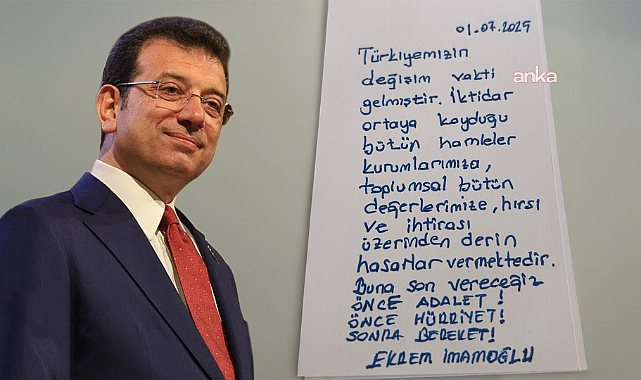 01.07.2025
Türkiyemizin
değişim vakti
anka
gelmiştir. İktidar
ortaya koyduğu
bütün hamleler
kurumlarımıza,
toplumsal bütün
değerlerimize, hırsı
ve ihtirası
üzerinden derin
hasarlar vermektedir.
Buna son vereceğiz
ÖNCE ADALET!
ÖNCE HÜRRİYET!
SONRA BEREKET!
EKREM İMAMOĞLU